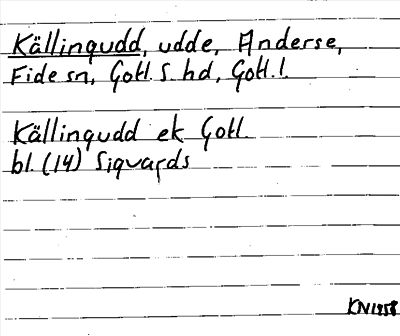 Källingudd, udde, Anderse,
Fide sn, Gotl. S. hd, Gotl. l.
Källingudd ek Gotl.
bl. (14) Sigvards
KN1958